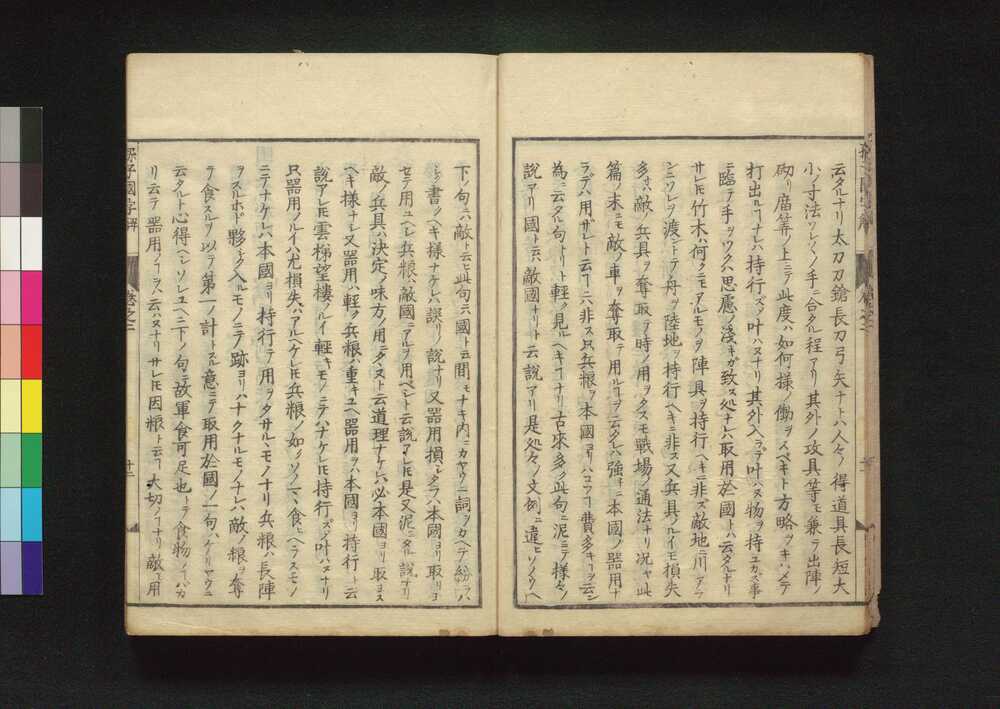 云タルナリ太刀刀鎗長刀弓矢ナトハ人々ノ得道具長短大
小ノ寸法ソレ〱ノ手ニ合タル程アリ其外ノ攻具等モ兼テ出陣ノ
砌リ廟筭ノ上ニテ此度ハ如何様ノ働ヲスベキト方略ヲキハメテ
打出ルヿナレハ持行ズメ叶ハヌナリ其外入ラデ叶ハヌ物ヲ持ユカズ事
ニ臨テ手ヲツクハ思慮ノ浅キガ致ス処ナレハ取用於國トハ云タルナリ
サレ𪜈竹木ハ何クニモアルモノヲ陣具ヲ持行ヘキニ非ズ敵地ニ川アラ
ンニソレヲ渡ントテ舟ヲ陸地ヲ持行ヘキニ非ス又兵具ノルイモ損失
多ケハ敵ノ兵具ヲ奪取テ時ノ用ヲタスモ戰場ノ通法ナリ況ヤ此
篇ノ末ニモ敵ノ車ヲ奪取テ用ルヿヲ云タレハ強ニ本國ノ器用ナ
ラデハ用ザレト云ヿニハ非ス只兵粮ヲ本國ヨリハコフヿ費多キヿヲ云ン
為ニ云タル句ナリト輕ク見ルヘキヿナリ古來多ク此句ニ泥ミテ様々ノ
説アリ國ト云ハ敵國ナリト云説アリ是処々ノ文例ニ違ヒソノウヘ
下ノ句ニハ敵ト云ヒ此句ニハ國ト云間モナキ内ニカヤウニ詞ヲカヘテ紛ラハ
シク書クヘキ様ナケレハ誤リノ説ナリ又器用損シタラハ本國ヨリ取リヨ
セテ用ユヘシ兵粮ハ敵國ニアルヲ用ベシト云説アレ𪜈是又泥ミタル説ナリ
敵ノ兵具ハ決定メ味方ノ用ニタヌスト云道理ナケレハ必本國ヨリ取ヨス
ヘキ様ナシ又器用ハ輕ク兵粮ハ重キユヘ器用ヲハ本國ヨリ持行ト云
説アレ𪜈雲梯望樓ノルイ輕キモノニテハナケレ𪜈持行ズメ叶ハヌナリ
只器用ノルイハ尤損失ハアルヘケレ𪜈兵粮ノ如クソノマヽ食ヒヘラスモノ
ニテナケレハ本國ヨリ持行テ用ヲタサルヽモノナリ兵粮ハ長陣
ヲスルホド夥シクヘルモノニテ跡ヨリハナクナルモノナレハ敵ノ粮ヲ奪
テ食スルヲ以テ第一ノ計トスル意ニテ取用於國ノ一句ハケリヤウニ
云タルト心得ヘシソレユヘニ下ノ句ニ故軍食可足也トテ食物ノヿバカ
リ云テ器用ノヿヲハ云ハヌナリサレ𪜈因粮ト云ヿ大切ノヿナリ敵モ用
孫子國字解
卷之二
十二